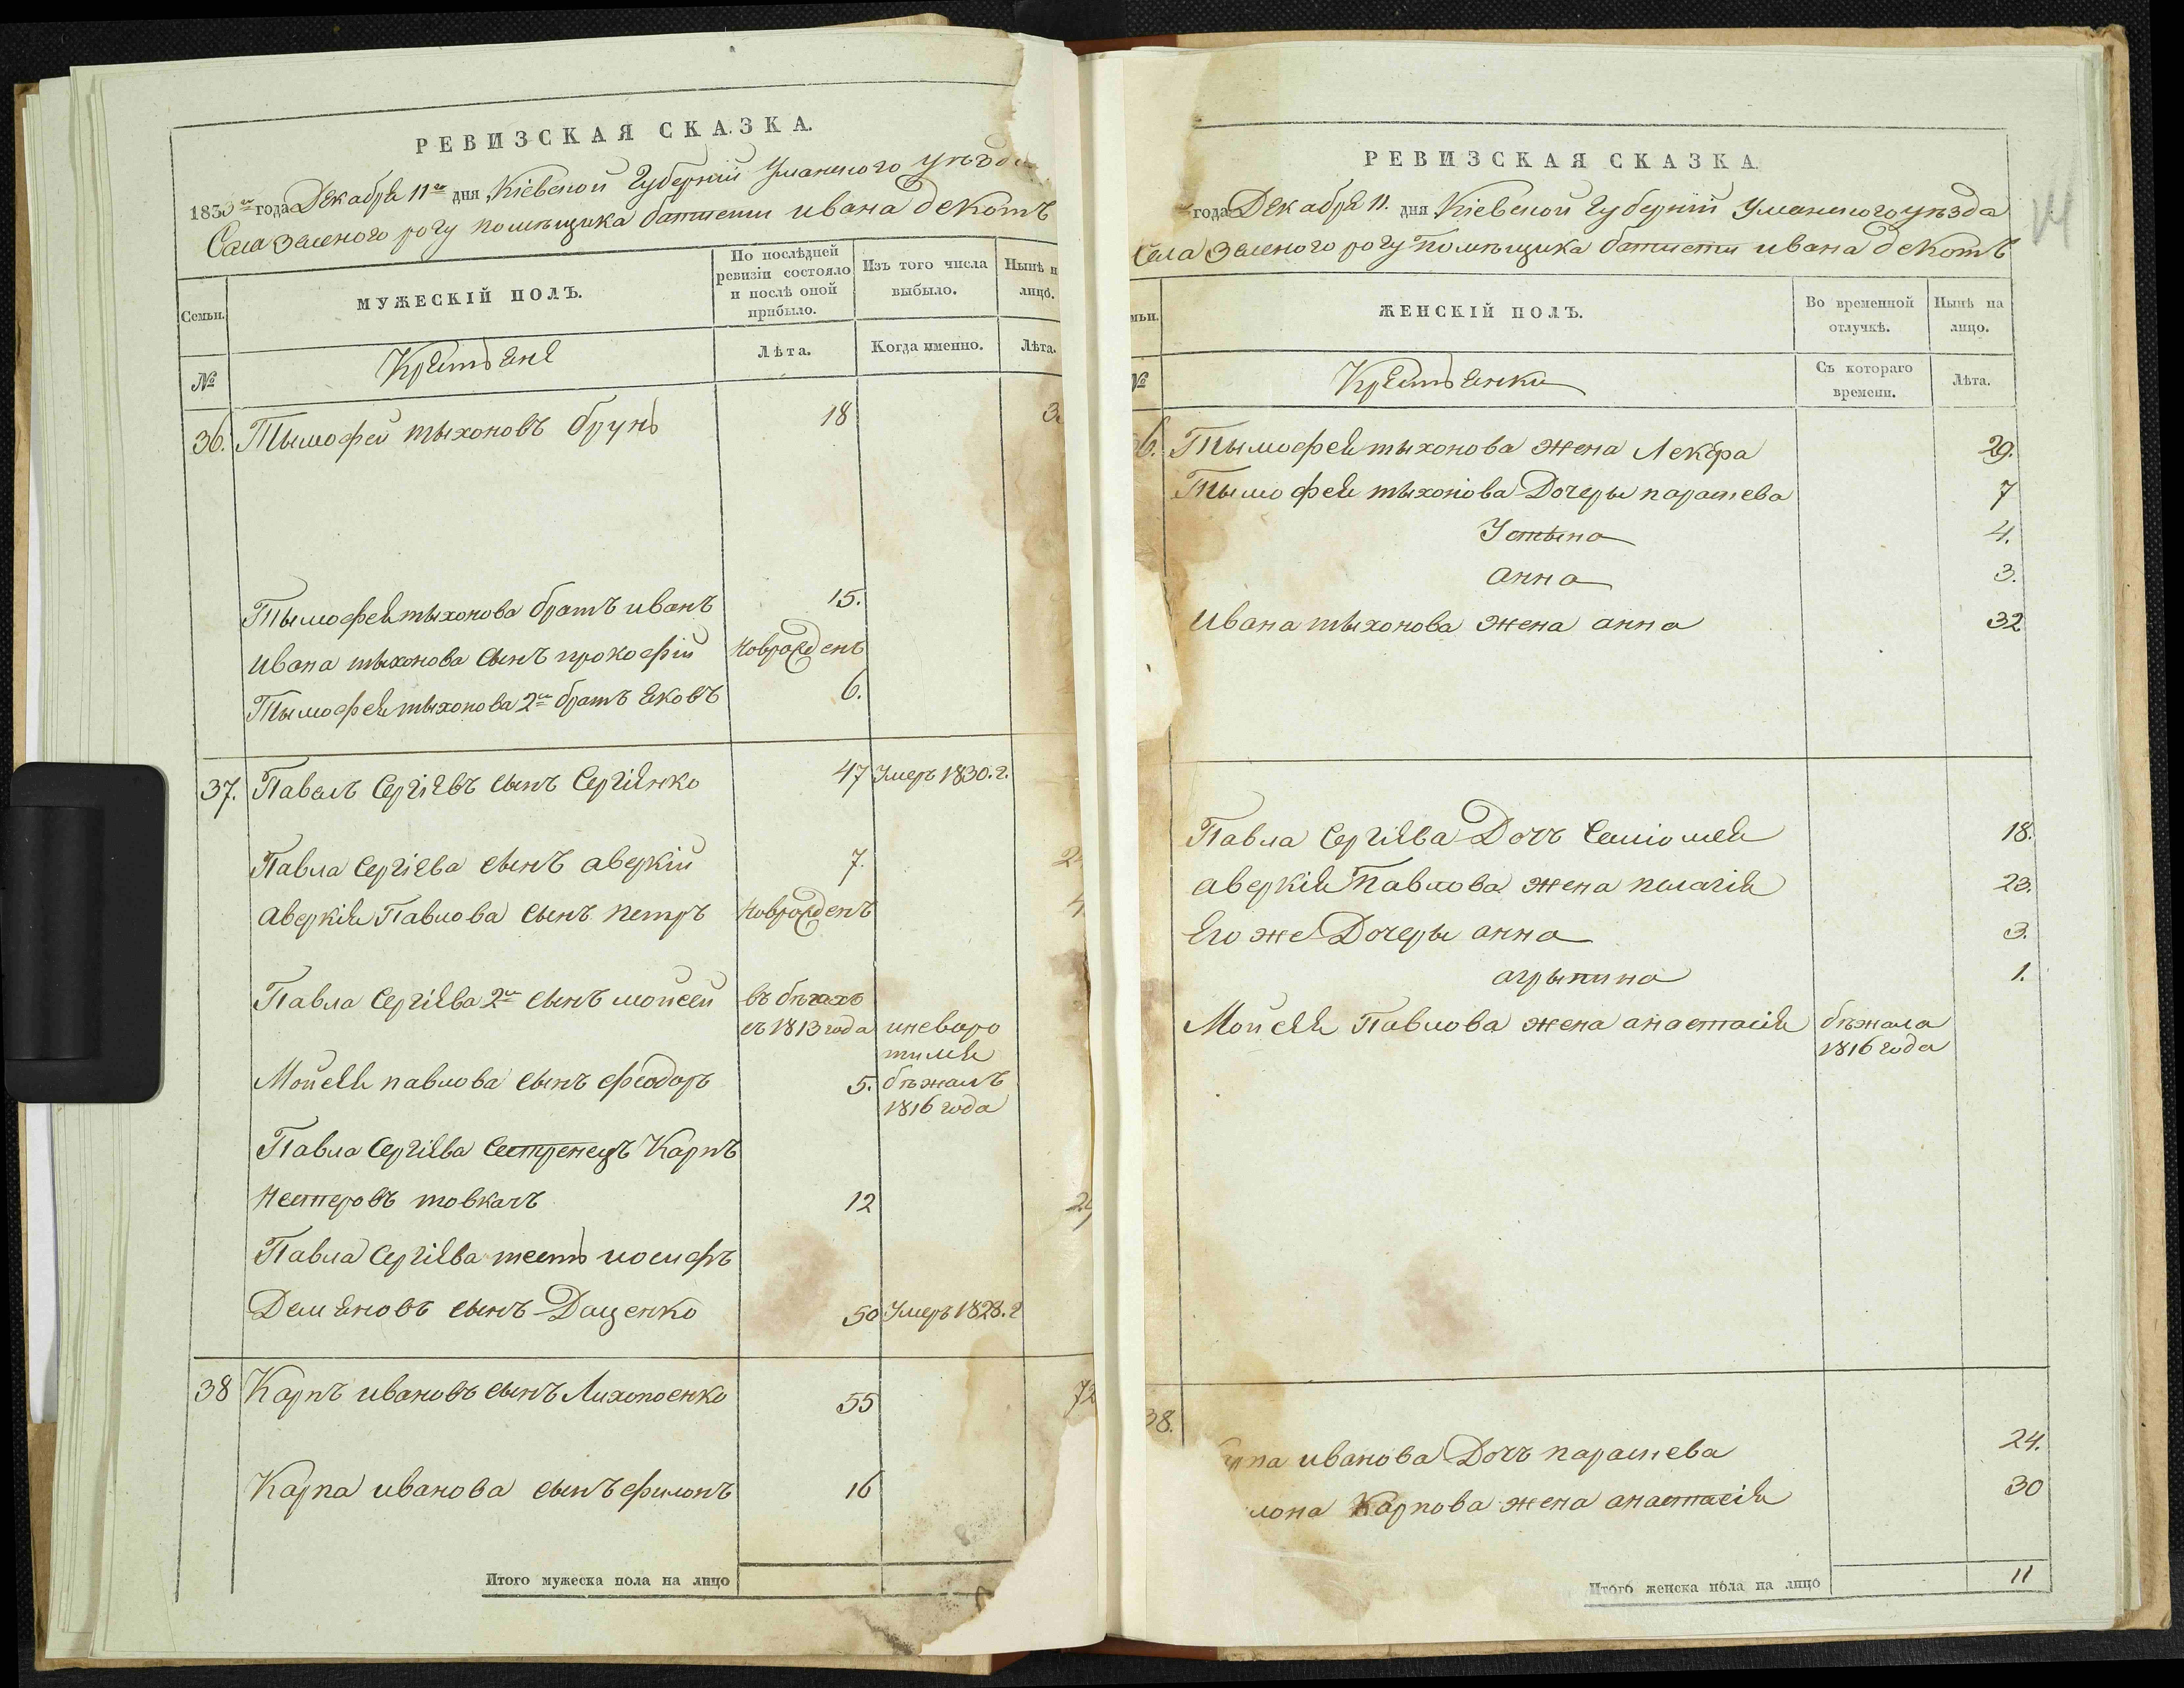 РЕВИЗСКАЯ СКАЗКА.
183 года Декабря 11го дня, Кіевской Губерніи Уманского уѣзда
Села Зеленого рогу помѣщика батисти ивана декотъ
Семьи.
МУЖЕСКІЙ ПОЛЪ.
По послѣдней ревизіи состояло и послѣ оной прибыло.
Изъ того числа выбыло.
Нынѣ н лицо.
№
Крестьяне
Лѣта.
Когда именно.
Лѣта.
36. Тымофей тыхоновъ брунь 18
Тымофея тыхонова братъ иванъ 15.
ивана тыхонова сынъ прокофій новрожденъ
Тымофея тыхонова 2й братъ яковъ 6.
37. Павелъ Сергіевъ сынъ Сергіянко 47 Умеръ 1830. г.
Павла Сергіева сынъ аверкій 7.
аверкія Павлова сынъ петръ новрожденъ
Павла Сергіева 2й сынъ мойсей въ бѣгахъ
съ 1813 года и неворо
тился
Мойсея павлова сынъ феодоръ 5. бѣжалъ
1816 года
Павла Сергіева Сестренецъ Карпъ
Нестеровъ товкачъ 12
Павла Сергіева тесть иосифъ
Демяновъ сынъ Даценко 50 Умеръ 1828. г
38 Карпъ ивановъ сынъ Лихопоенко 55 72
Карпа иванова сынъ филонъ 16
Итого мужеска пола на лицо
РЕВИЗСКАЯ СКАЗКА.
14
года Декабря 11. дня Кіевской Губерніи Уманского уѣзда
Села Зеленого рогу Помѣщика батисти ивана декотъ
мьи.
ЖЕНСКІЙ ПОЛЪ.
Во временной отлучкѣ.
Нынѣ на лицо.
№
Крестьянки
Съ котораго времени.
Лѣта.
6. Тымофея тыхонова жена Лекѣра 29.
Тымофея тыхонова Дочеры парасцева 7
Устына 4.
анна 3.
Ивана тыхонова жена анна 32
Павла Сергіева Дочь 18.
аверкія Павлова жена пелагія 23.
Его же Дочеры анна 3.
агрыпина 1.
Мойсея Павлова жена анастасія бѣжала
1816 года
38.
рпа иванова Дочь парасцева 24.
лона Карпова жена анастасія 30
Итого женска пола на лицо 11